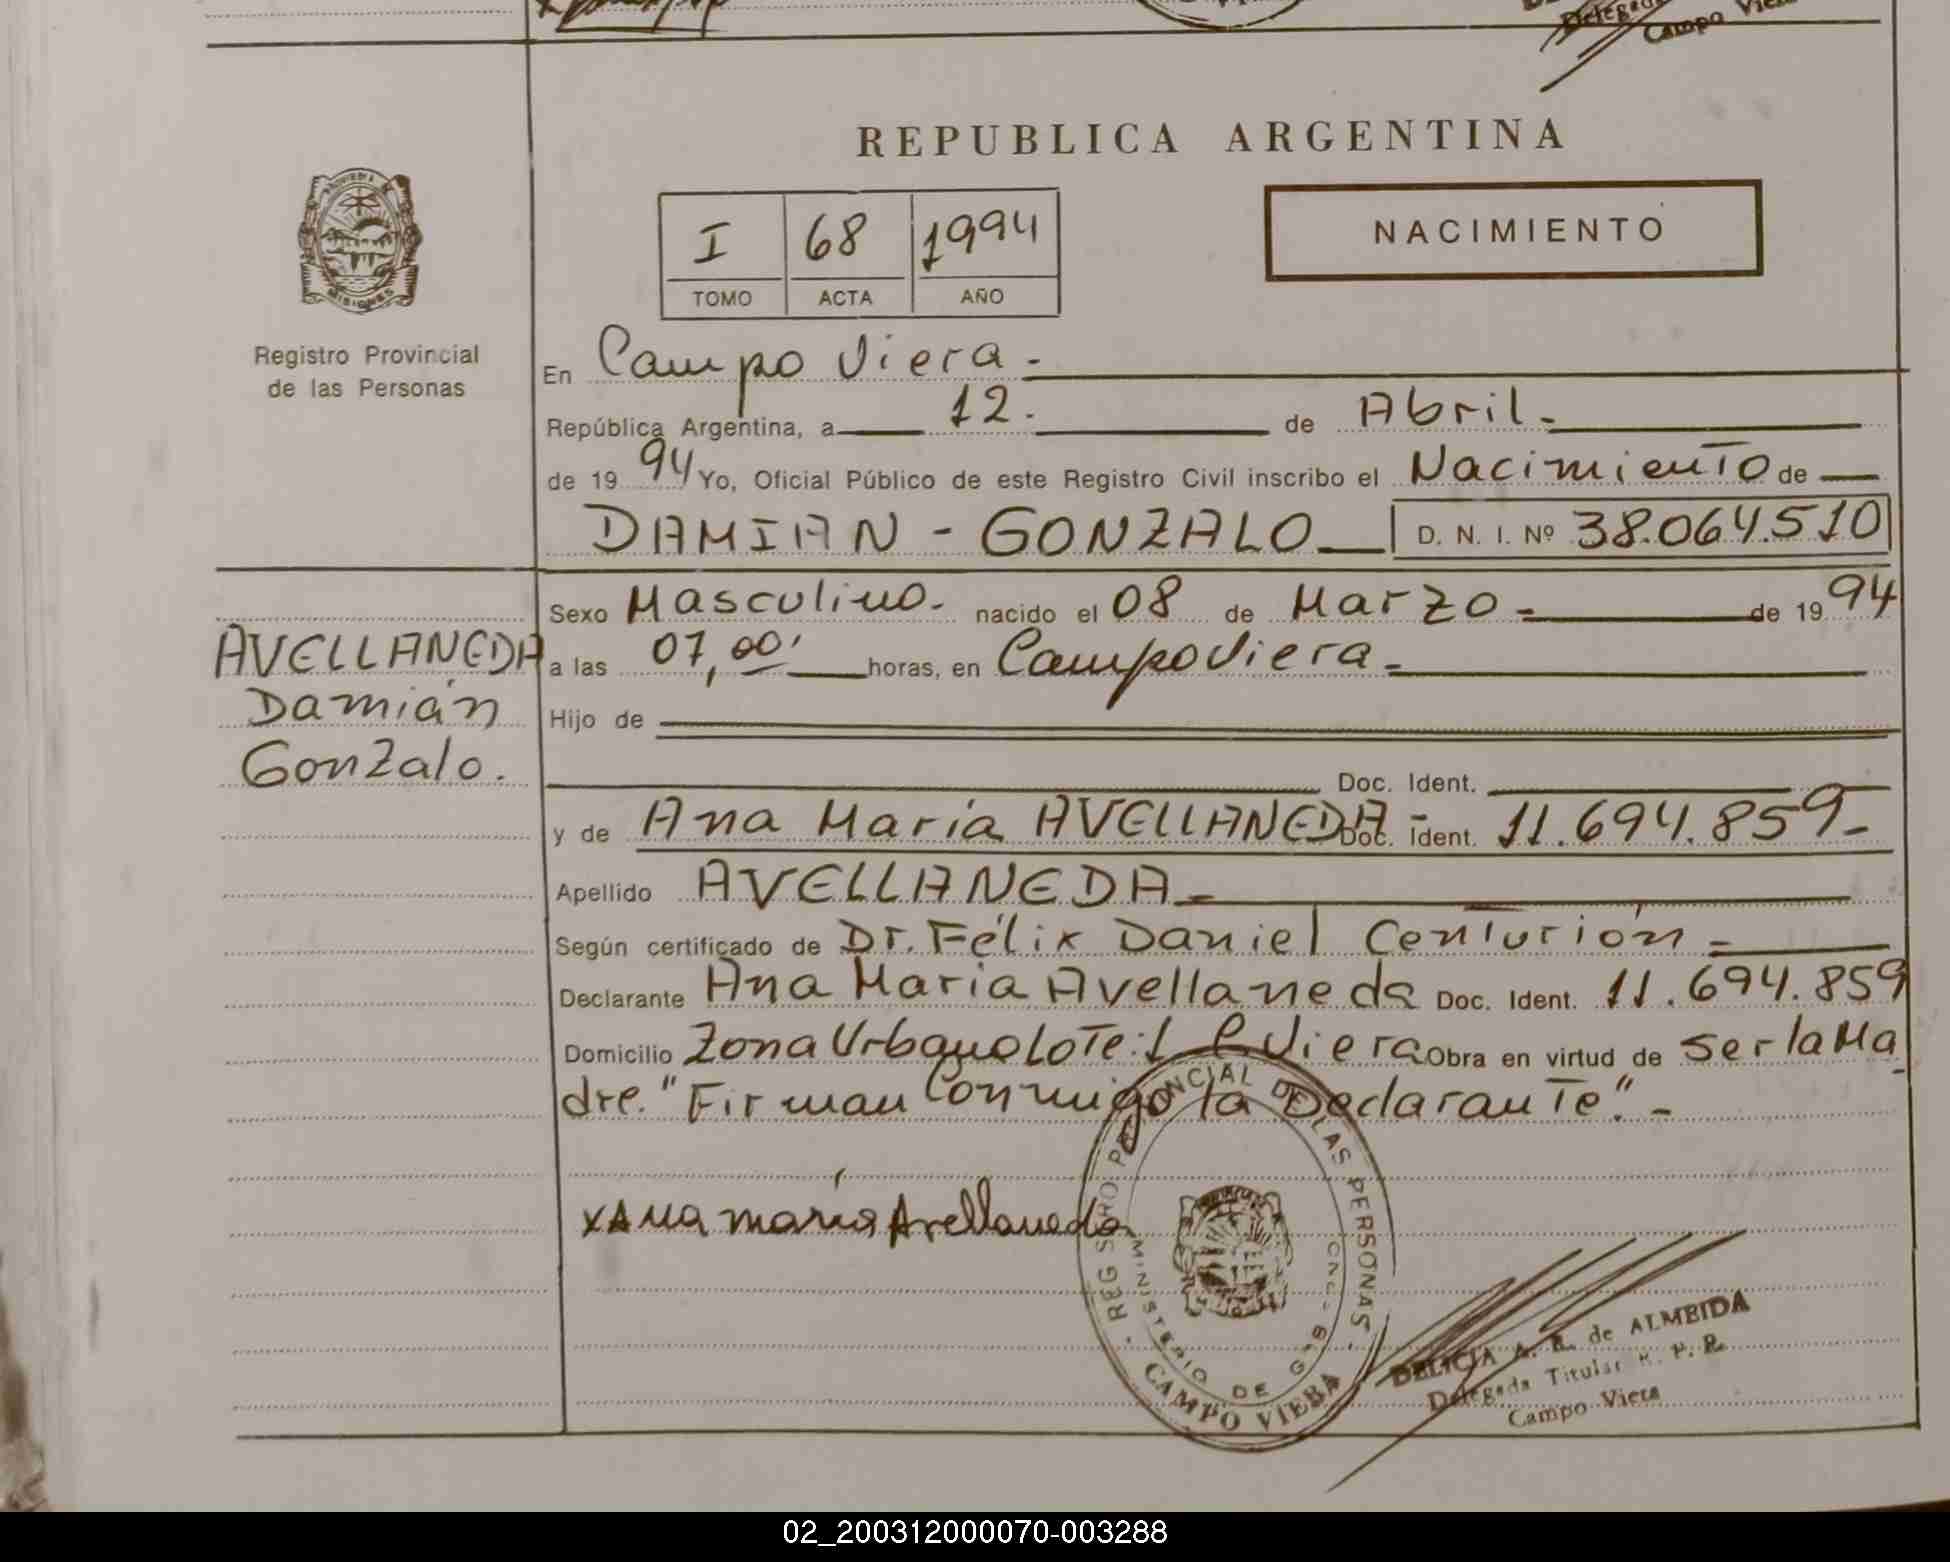 Delegada
Campo Viera
REPUBLICA ARGENTINA
I 68 1994
TOMO ACTA AÑO
NACIMIENTO
PROVINCIA DE
MISIONES
Registro Provincial
de las Personas
En Campo Viera -
República Argentina, a 12. de Abril -
de 19 94 Yo, Oficial Público de este Registro Civil inscribo el Nacimiento de
DAMIAN - GONZALO D. N. I. Nº 38.064.510
Sexo Masculino. nacido el 08 de Marzo - de 19 94
AVELLANEDA
Damián
Gonzalo.
a las 07,00' horas, en Campo Viera -
Hijo de
Doc. Ident.
y de Ana María AVELLANEDA - Doc. Ident. 11.694.859-
Apellido AVELLANEDA -
Según certificado de Dr. Félix Daniel Centurión -
Declarante Ana Maria Avellaneda Doc. Ident. 11.694.859
Domicilio Zona Urbana Lote:1 C. Viera Obra en virtud de ser la Ma
dre. "Firman Conmigo la Declarante". -
x Ana maria Avellaneda
REGISTRO PROVINCIAL DE LAS PERSONAS
MINISTERIO DE GOB
CAMPO VIERA
DELICIA A. R. de ALMEIDA
Delegada Titular R. P. P.
Campo Viera
02_200312000070-003288